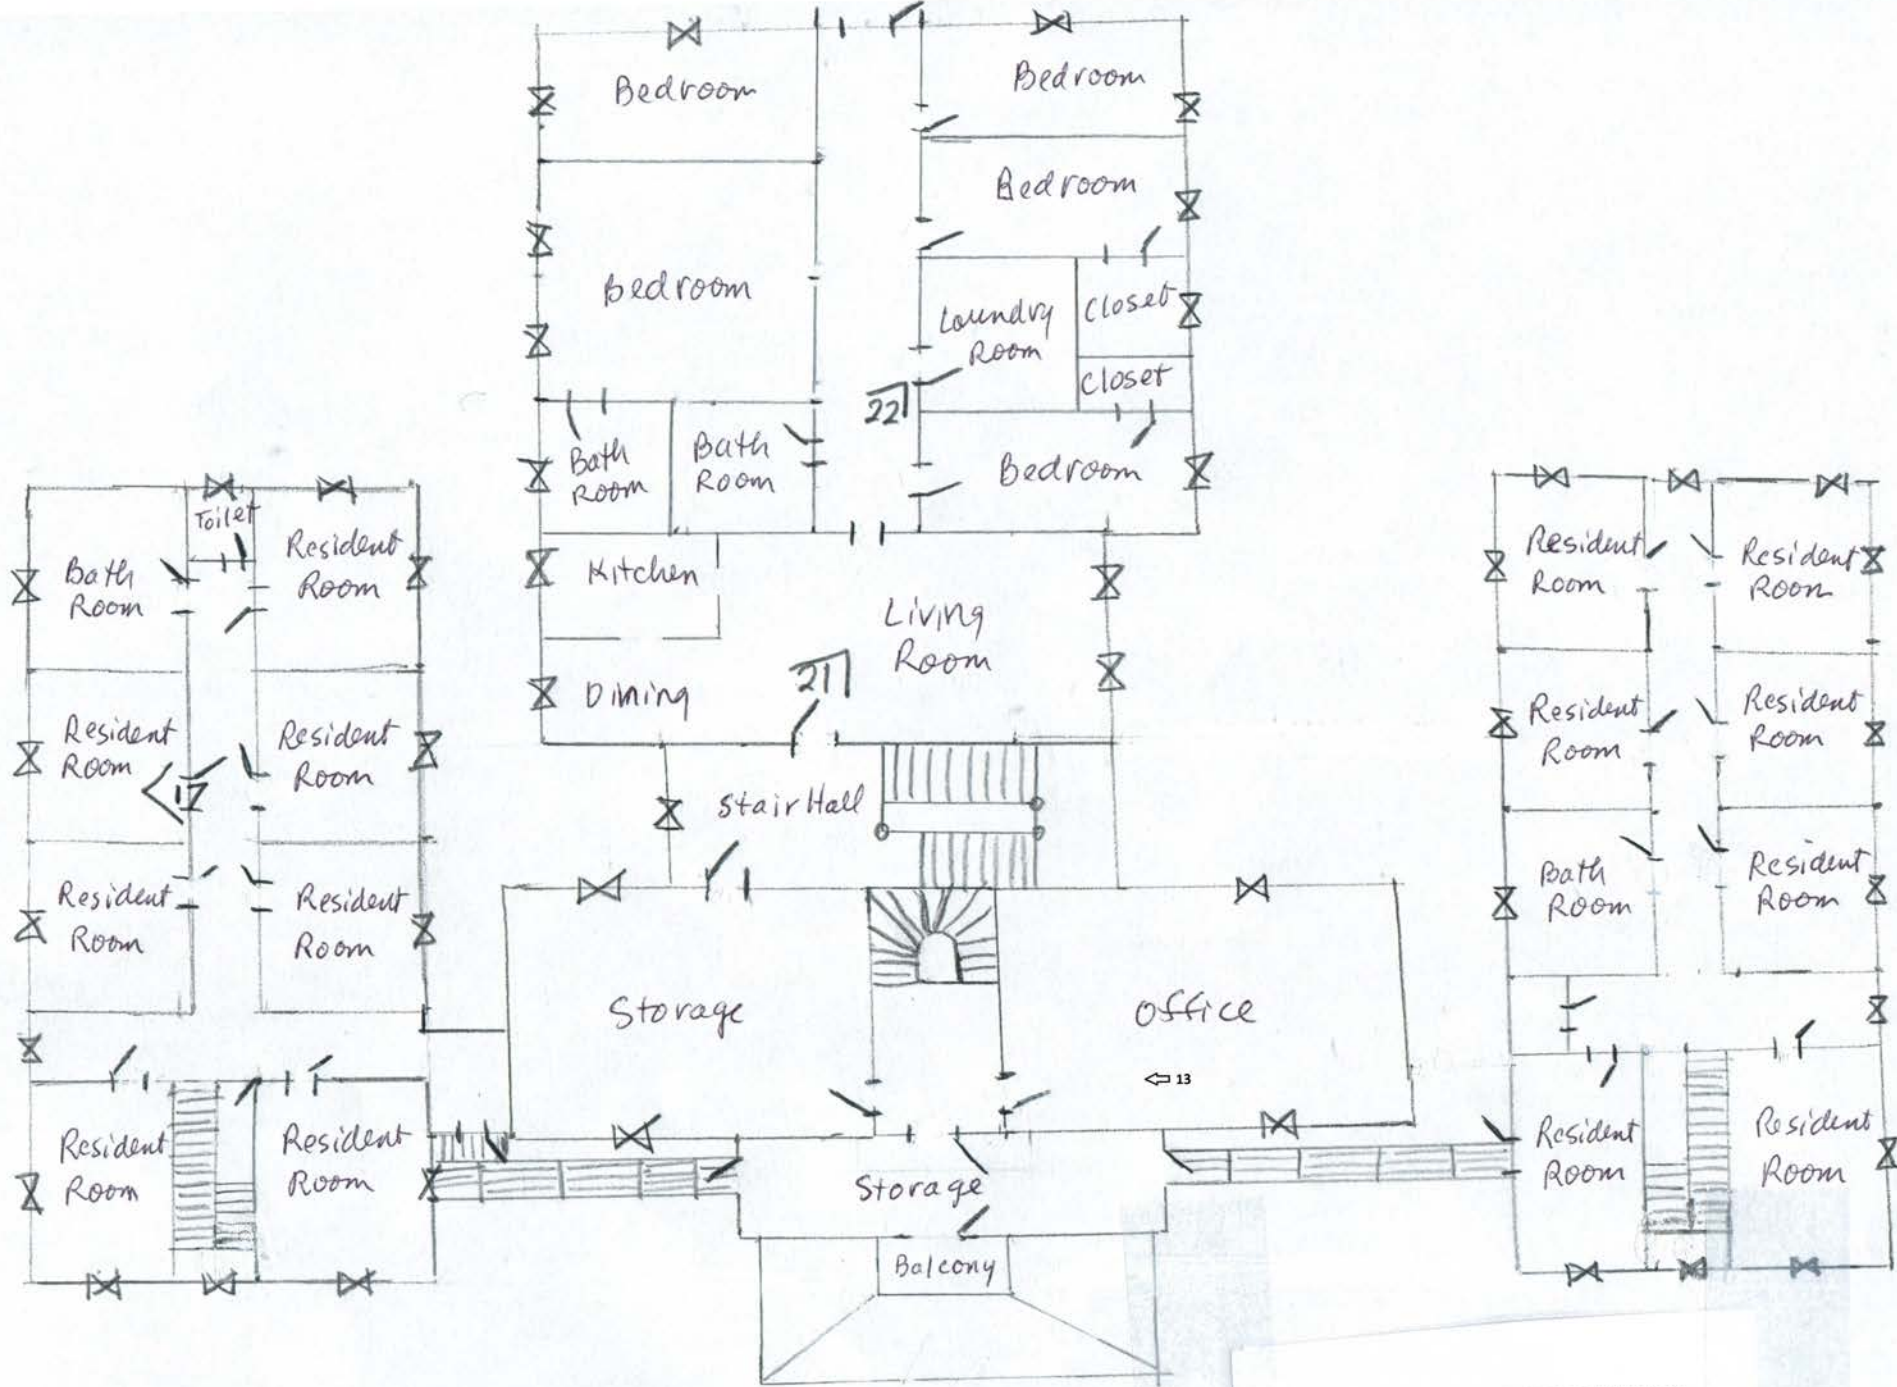 Bedroom
Bedroom
Bedroom
Bedroom
Laundry
Room
Closet
Closet
22
Bath
Room
Bath
Room
Bedroom
Kitchen
Living
Room
Dining
21
Stair Hall
Toilet
Bath
Room
Resident
Room
Resident
Room
Resident
Room
17
Resident
Room
Resident
Room
Resident
Room
Resident
Room
Storage
Office
13
Storage
Balcony
Resident
Room
Resident
Room
Resident
Room
Resident
Room
Bath
Room
Resident
Room
Resident
Room
Resident
Room